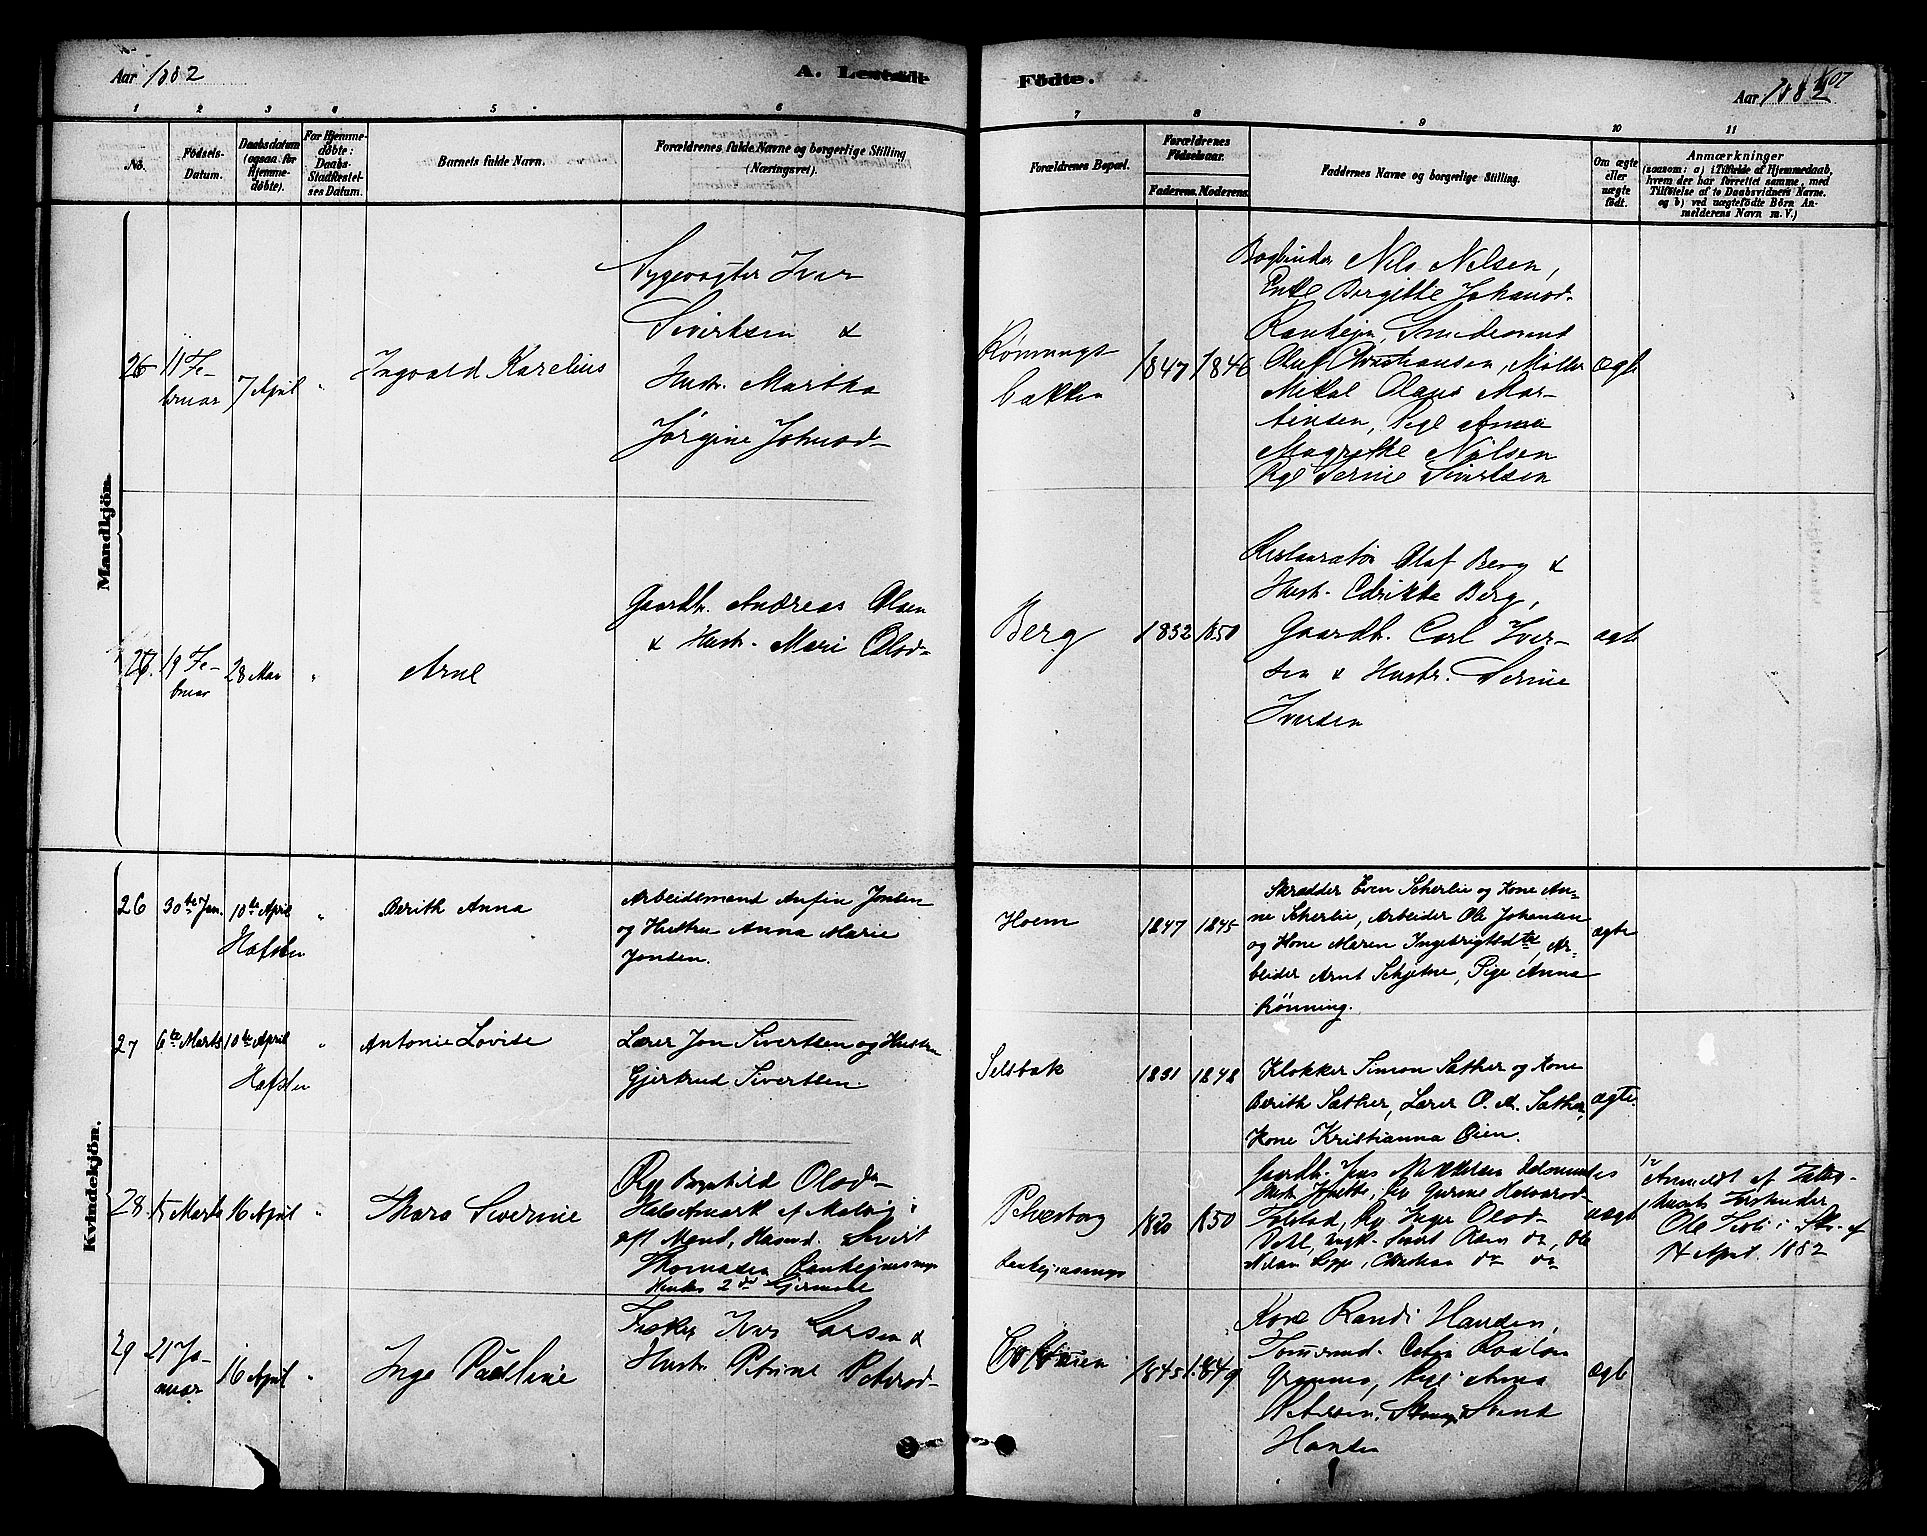 Aar 1882
A. Levende
Födte.
Aar 1882
107
1 2 3 4 5 6 7 8 9 10 11
No.
Födsels-
Datum.
Daabsdatum
(ogsaa for
Hjemme-
döbte).
For Hjemme-
döbte:
Daabs-
Stadfæstel-
ses Datum.
Barnets fulde Navn.
Forældrenes fulde Navne og borgerlige Stilling
(Næringsvei).
Forældrenes Bopæl.
Forældrenes
Födselsaar.
Faderens. Moderens.
Faddernes Navne og borgerlige Stilling.
Om ægte
eller
uægte
födt.
Anmærkninger
(saasom: a) i Tilfælde af Hjemmedaab,
hvem der har forrettet samme, med
Tilföielse af to Daabsvidners Navne.
og b) ved uægtefödte Börn An-
melderens Navn m. V.)
Mandkjön.
26 11 Fe-
bruar
7 April
"
Ingvald Karelius
Sygevogter Ivar
Sivertsen &
Hustr. Martha
Jørgine Johnsd-
Rønnings
bakken
1847 1846
Bogbinder Nils Nilsen,
Enke Bergitte Johansd-
Ranheim, Smedesvend
Oluf Christiansen, Møller
Mikal Olaus Mar-
tinsen, Pige Anna
Magrethe Nilsen
Pige Serine Sivertsen
ægte
27. 19 Fe-
bruar
28 Mai
"
Arne
Gaardb. Andreas Olsen
& Hustr. Marie Olsd-
Berg
1852 1850
Restauratør Olaf Berg &
Hustr. Edrikke Berg,
Gaardb. Carl Iver-
sen & Hustr. Serine
Iversen
ægte
Kvindekjön.
26 30te Jan.
10te April
Hafsten
"
Berith Anna
Arbeidsmand Anfin Jonsen
og Hustru Anna Marie
Jonsen.
Hoem
1847 1845
Skrædder Even Scherlie og Kone An-
ne Scherlie, Arbeider Ole Johansen
og Kone Maren Ingebrigtsdtr, Ar-
beider Arnt Schjetne, Pige Anna
Rönning.
ægte
27 6te Marts
10te April
Hafsten
"
Antonie Lovise
Lærer Jon Sivertsen og Hustru
Gjertrud Sivertsen.
Selsbak
1831 1848
Klokker Simon Sæther og Kone
Berith Sæther, Lærer O. A. Sæther,
Kone Kristianna Öien.
ægte.
28. 5 Marts
16 April
"
Thora Severine
Pige Olsd-
af
gft Mand, Sivert
Thomassen
Hendes 2det
1820 1850
Gaardb. Jens
Hustr. Gurine Halvorsd-
Folstad, Pg. Inger Olsd-
Sivert Olsen do, Ole
Nilsen do do
uægte
Anmeldt af Fattig-
Ole i Skr. af
14 April 1882
29 21 Ja-
nuar
16 April
"
Inge Pauline
Fisker Ivar Larsen &
Hustr. Petrine Petersd-
1845 1849
Kone Randi Hansen,
Grannes, Pige Anna
Petersen, Svend
Hansen
ægte